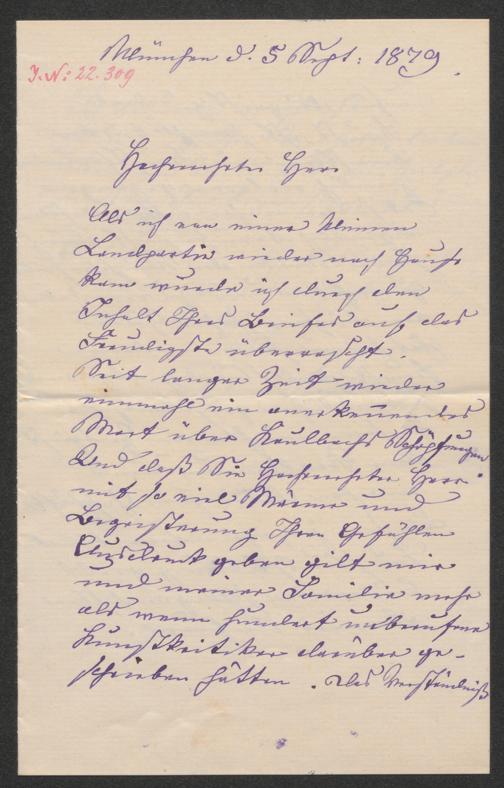 München d. 5 Sept: 1879.
I.N: 22.309
Hochverehrter Herr
Als ich von einer kleinen
Landpartie wieder nach Hause
kam wurde ich durch den
Inhalt Ihres Briefes auf das
Freudigste überrascht.
Seit langer Zeit wieder
einmahl ein anerkennendes
Wort über Kaulbachs Schöpfungen
Und daß Sie Hochverehrter Herr
mit so viel Wärme und
Begeisterung Ihren Gefühlen
Ausdruck geben gilt mir
und meiner Familie mehr
als wenn hundert unberufene
Kunstkritiker darüber ge-
schrieben hätten. Das Verständniß